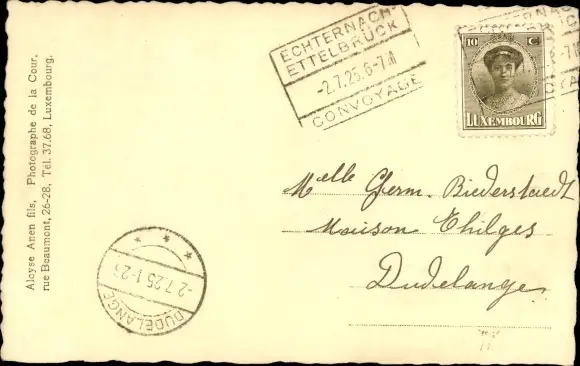 Aloyse Anen fils, Photographe de la Cour,
rue Beaumont, 26-28, Tél. 37.68, Luxembourg.
ECHTERNACH-
ETTELBRÜCK
-2.7.25.6-7M
CONVOYAGE
10 C
LUXEMBOURG
Melle Germ. Biederstaedt
Maison Thilges
Dudelange
-2.7.25 1-2S
DUDELANGE